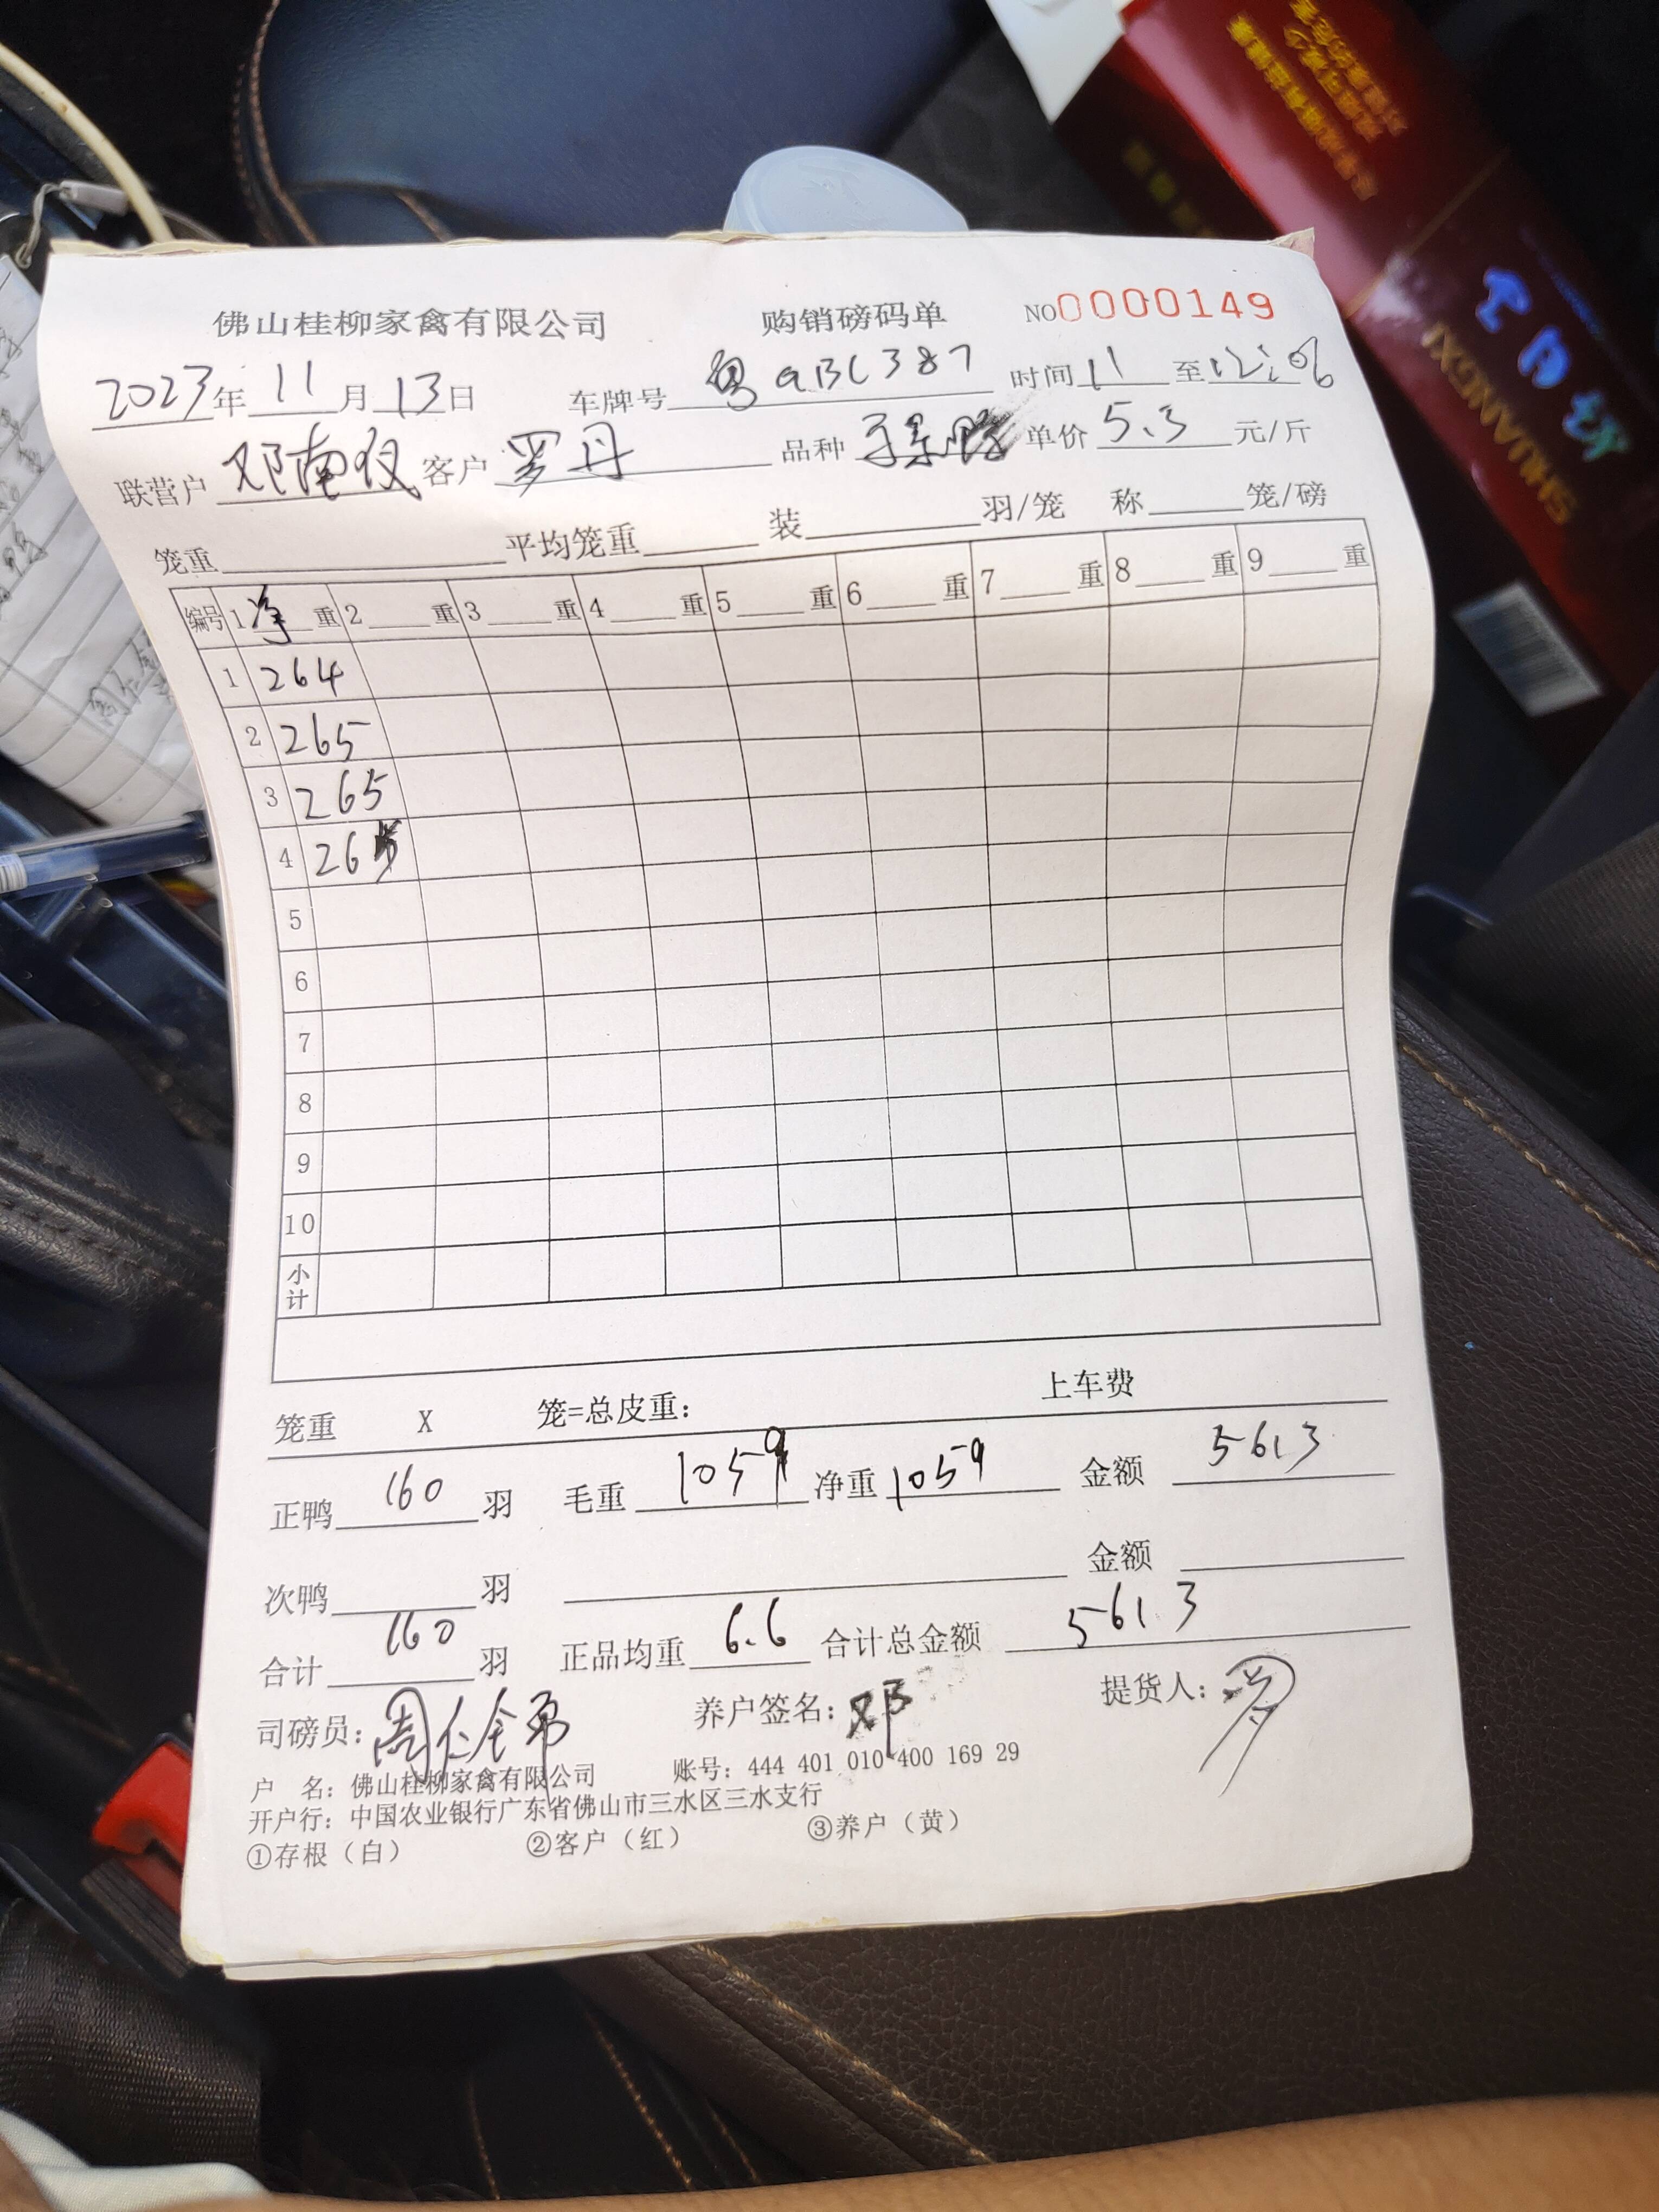 佛山桂柳家禽有限公司 购销磅码单 NO0000149
2023年11月13日 车牌号粤ABC387 时间11至12:06
联营户邓南仪 客户罗丹 品种 单价5.3元/斤
笼重 平均笼重 装 羽/笼 称 笼/磅
编号 1净重 2 重 3 重 4 重 5 重 6 重 7 重 8 重 9 重
1 264
2 265
3 265
4 265
5
6
7
8
9
10
小计
笼重 X 笼=总皮重: 上车费
正鸭160羽 毛重1059 净重1059 金额5613
次鸭 羽 金额
合计160羽 正品均重6.6 合计总金额5613
司磅员: 养户签名:邓 提货人:罗
户 名:佛山桂柳家禽有限公司 账号:444 401 010 400 169 29
开户行:中国农业银行广东省佛山市三水区三水支行
①存根(白) ②客户(红) ③养户(黄)
SHUANGXI